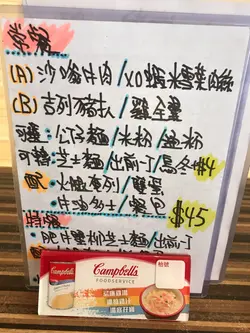 常餐
(A) 沙嗲牛肉/XO蝦米雪菜肉絲
(B) 吉列豬扒/雞全翼
可選:公仔麵/米粉/通粉
可轉:芝士麵/出前一丁/烏冬+$4
配:火腿奄列/雙蛋
牛油多士/餐包
$45
特餐
肥牛蟹柳芝士麵/出前一丁
Campbell's
FOODSERVICE
Campbell's